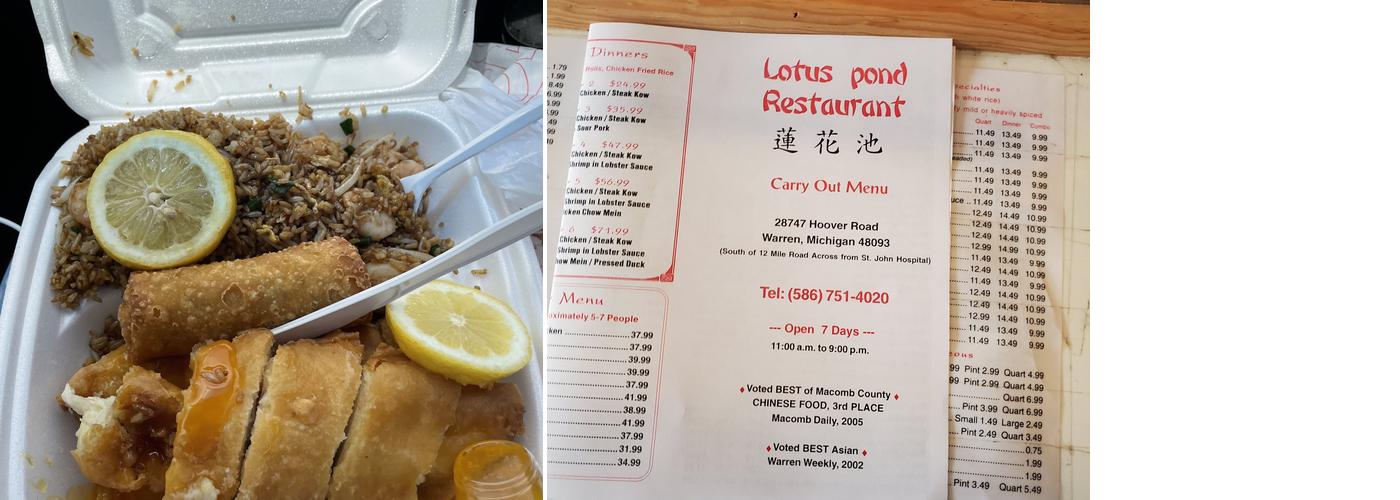 Dinners
Rolls, Chicken Fried Rice
2 $24.99
Chicken / Steak Kow
3 $35.99
Chicken / Steak Kow
Sour Pork
4 $47.99
Chicken / Steak Kow
Shrimp in Lobster Sauce
5 $56.99
Chicken / Steak Kow
Shrimp in Lobster Sauce
Chow Mein
6 $71.99
Chicken / Steak Kow
Shrimp in Lobster Sauce
Mein / Pressed Duck
Menu
5-7 People
37.99
37.99
39.99
39.99
37.99
41.99
38.99
41.99
37.99
31.99
34.99
1.79
1.99
8.49
Lotus pond
Restaurant
蓮花池
Carry Out Menu
28747 Hoover Road
Warren, Michigan 48093
(South of 12 Mile Road Across from St. John Hospital)
Tel: (586) 751-4020
--- Open 7 Days ---
11:00 a.m. to 9:00 p.m.
Voted BEST of Macomb County
CHINESE FOOD, 3rd PLACE
Macomb Daily, 2005
Voted BEST Asian
Warren Weekly, 2002
white rice)
mild or heavily spiced
Quart Dinner Combo
11.49 13.49 9.99
11.49 13.49 9.99
11.49 13.49 9.99
11.49 13.49 9.99
11.49 13.49 9.99
11.49 13.49 9.99
12.49 14.49 10.99
12.49 14.49 10.99
12.49 14.49 10.99
12.99 14.99 10.99
11.49 13.49 9.99
12.49 14.49 10.99
11.49 13.49 9.99
12.49 14.49 10.99
12.49 14.49 10.99
12.99 14.49 10.99
11.49 13.49 9.99
11.49 13.49 9.99
Pint 2.99 Quart 4.99
Pint 2.99 Quart 4.99
Quart 6.99
Pint 3.99 Quart 6.99
Small 1.49 Large 2.49
Pint 2.49 Quart 3.49
0.75
1.99
1.99
Pint 3.49 Quart 5.49